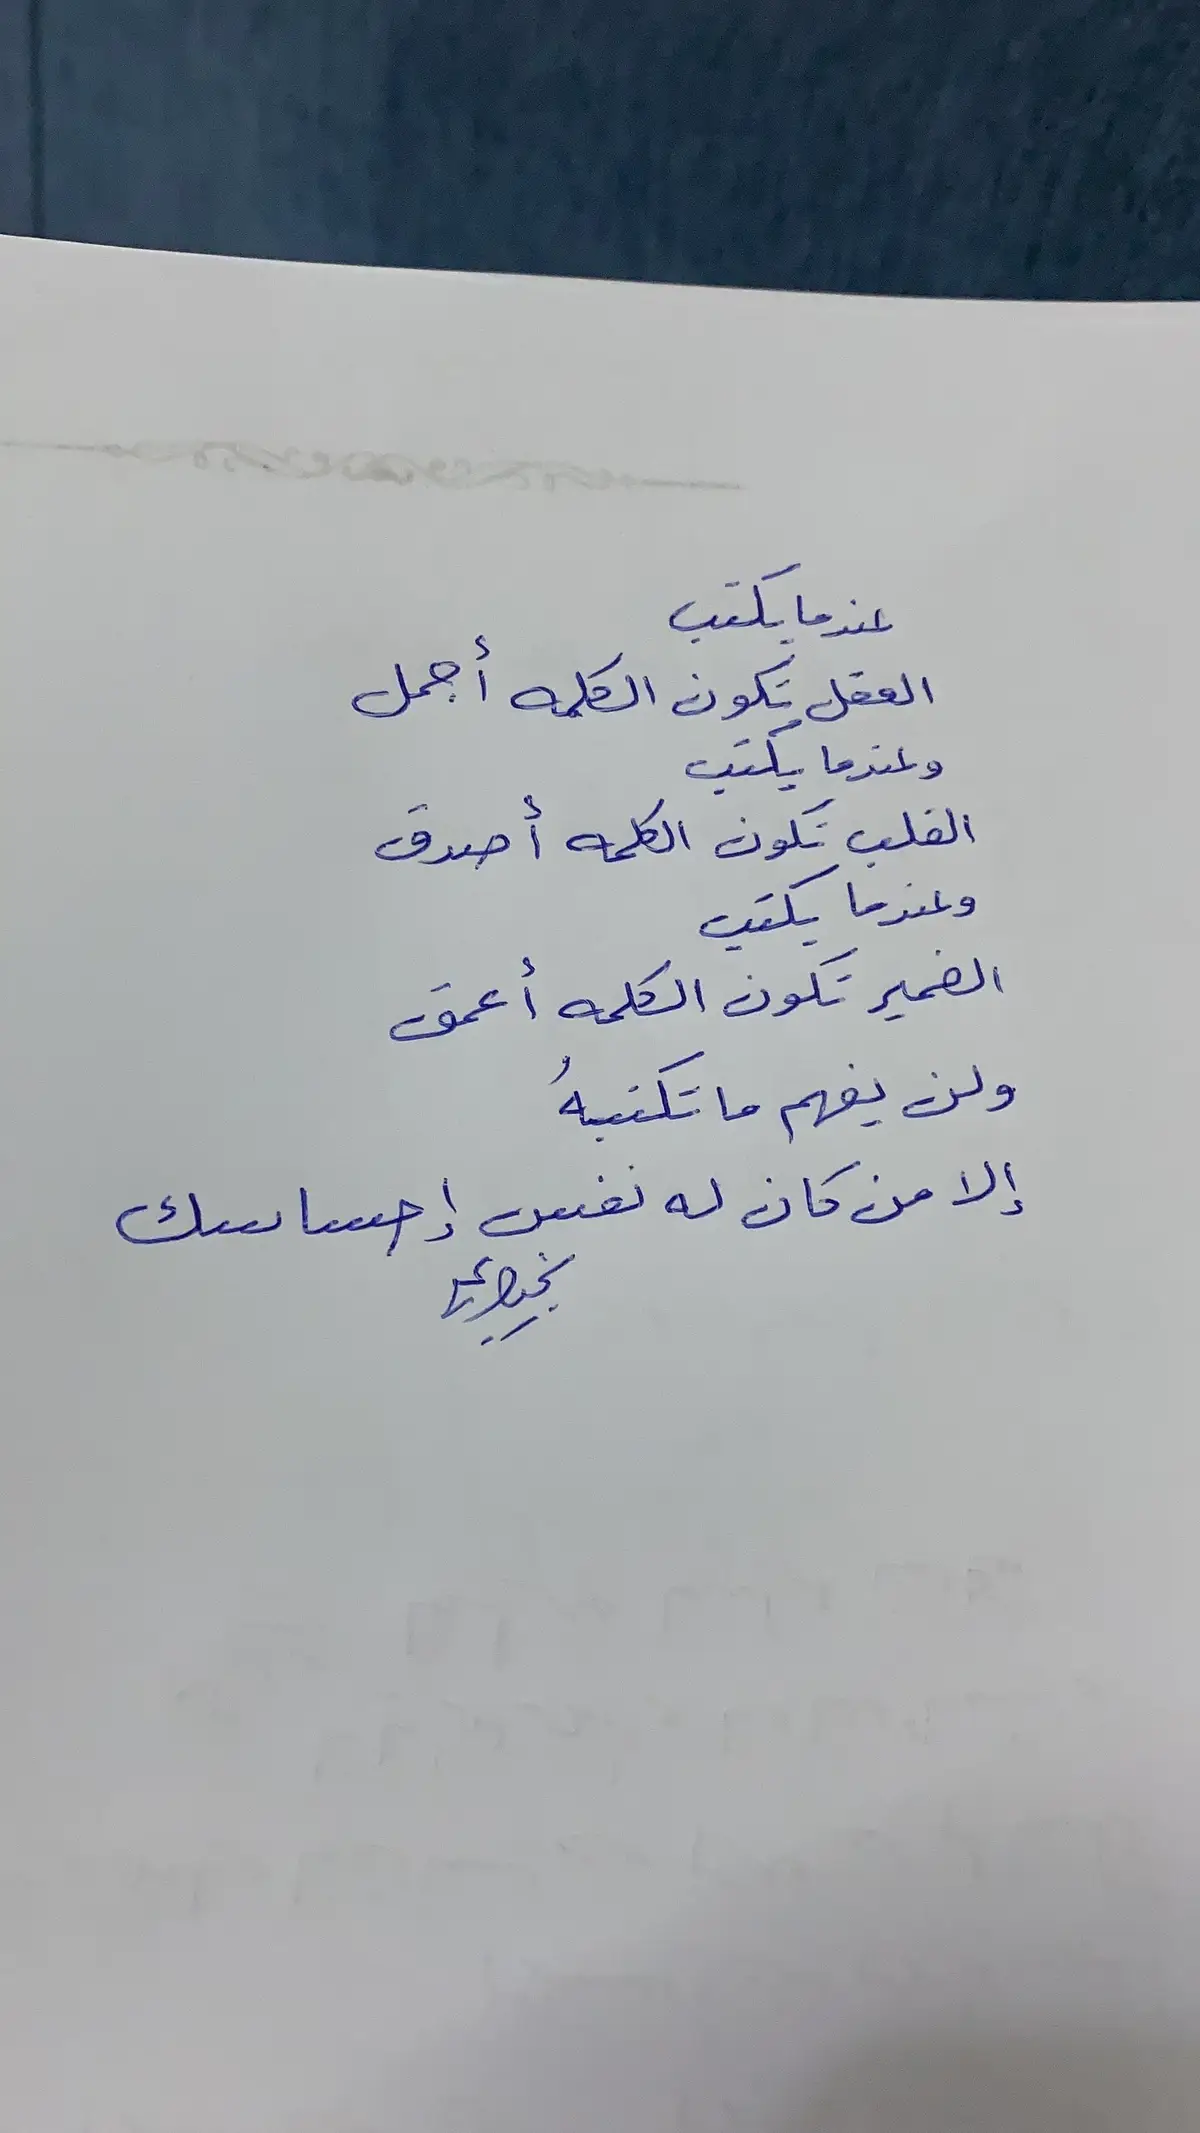 عندما يكتب
العقل تكون الكلمه أجمل
وعندما يكتب
القلب تكون الكلمه أصدق
وعندما يكتب
الضمير تكون الكلمه أعمق
ولن يفهم ما تكتبهُ
إلا من كان له نفس إحساسك